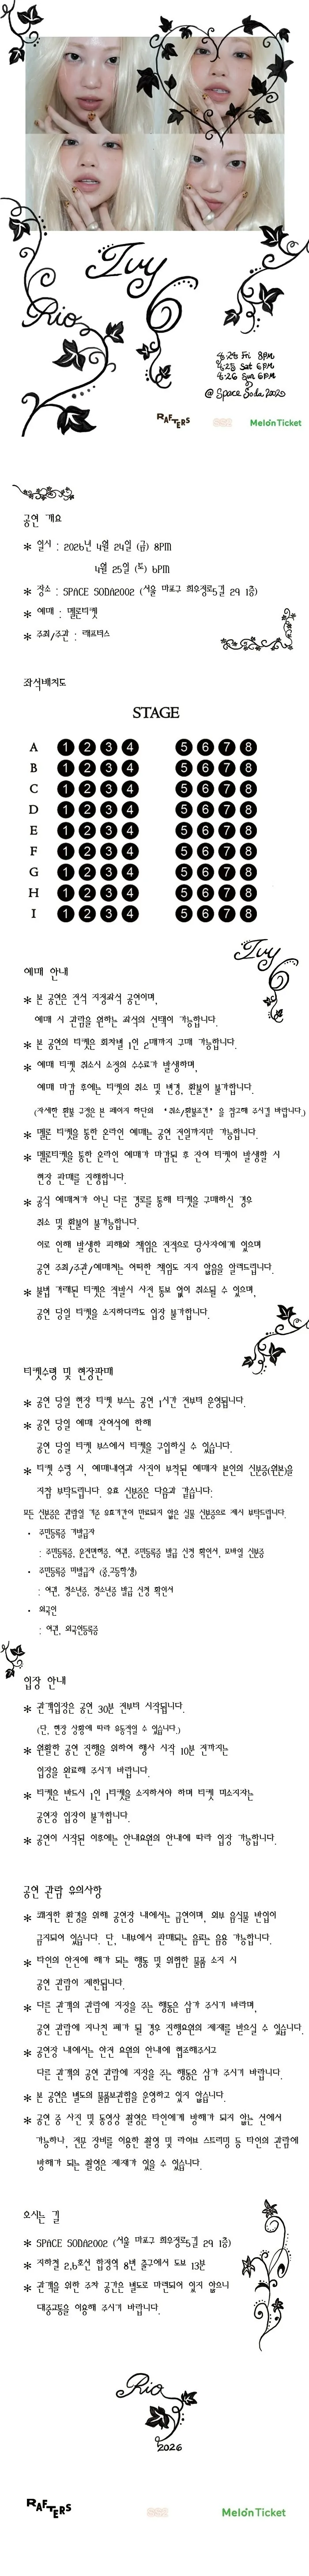 Ivy
Rio
4.24 Fri 8PM
4.25 Sat 6PM
4.26 Sun 6PM
@ Space Soda 2002
RAFTERS
Melon Ticket
공연 개요
* 일시 : 2026년 4월 24일 (금) 8PM
4월 25일 (토) 6PM
* 장소 : SPACE SODA2002 (서울 마포구 희우정로5길 29 1층)
* 예매 : 멜론티켓
* 주최/주관 : 래프터스
좌석배치도
STAGE
A 1 2 3 4 5 6 7 8
B 1 2 3 4 5 6 7 8
C 1 2 3 4 5 6 7 8
D 1 2 3 4 5 6 7 8
E 1 2 3 4 5 6 7 8
F 1 2 3 4 5 6 7 8
G 1 2 3 4 5 6 7 8
H 1 2 3 4 5 6 7 8
I 1 2 3 4 5 6 7 8
Ivy
예매 안내
* 본 공연은 전석 지정좌석 공연이며,
예매 시 관람을 원하는 좌석의 선택이 가능합니다.
* 본 공연의 티켓은 회차별 1인 2매까지 구매 가능합니다.
* 예매 티켓 취소시 소정의 수수료가 발생하며,
예매 마감 후에는 티켓의 취소 및 변경, 환불이 불가합니다.
(자세한 환불 규정은 본 페이지 하단의 '취소/환불조건'을 참고해 주시길 바랍니다.)
* 멜론 티켓을 통한 온라인 예매는 공연 전일까지만 가능합니다.
* 멜론티켓을 통한 온라인 예매가 마감된 후 잔여 티켓이 발생할 시
현장 판매를 진행합니다.
* 공식 예매처가 아닌 다른 경로를 통해 티켓을 구매하신 경우
취소 및 환불이 불가능합니다.
이로 인해 발생한 피해의 책임은 전적으로 당사자에게 있으며
공연 주최/주관/예매처는 어떠한 책임도 지지 않음을 알려드립니다.
* 불법 거래된 티켓은 적발시 사전 통보 없이 취소될 수 있으며,
공연 당일 티켓을 소지하더라도 입장 불가합니다.
티켓수령 및 현장판매
* 공연 당일 현장 티켓 부스는 공연 1시간 전부터 운영됩니다.
* 공연 당일 예매 잔여석에 한해
공연 당일 티켓 부스에서 티켓을 구입하실 수 있습니다.
* 티켓 수령 시, 예매내역과 사진이 부착된 예매자 본인의 신분증(원본)을
지참 부탁드립니다. 유효 신분증은 다음과 같습니다:
모든 신분증은 관람일 기준 유효기간이 만료되지 않은 실물 신분증으로 제시 부탁드립니다.
• 주민등록증 기발급자
: 주민등록증, 운전면허증, 여권, 주민등록증 발급 신청 확인서, 모바일 신분증
• 주민등록증 미발급자 (중,고등학생)
: 여권, 청소년증, 청소년증 발급 신청 확인서
• 외국인
: 여권, 외국인등록증
입장 안내
* 관객입장은 공연 30분 전부터 시작됩니다.
(단, 현장 상황에 따라 유동적일 수 있습니다.)
* 원활한 공연 진행을 위하여 행사 시작 10분 전까지는
입장을 완료해 주시기 바랍니다.
* 티켓은 반드시 1인 1티켓을 소지하셔야 하며 티켓 미소지자는
공연장 입장이 불가합니다.
* 공연이 시작된 이후에는 안내요원의 안내에 따라 입장 가능합니다.
공연 관람 유의사항
* 쾌적한 환경을 위해 공연장 내에서는 금연이며, 외부 음식물 반입이
금지되어 있습니다. 단, 내부에서 판매되는 음료는 음용 가능합니다.
* 타인의 안전에 해가 되는 행동 및 위험한 물품 소지 시
공연 관람이 제한됩니다.
* 다른 관객의 관람에 지장을 주는 행동은 삼가 주시기 바라며,
공연 관람에 지나친 폐가 될 경우 진행요원의 제재를 받으실 수 있습니다.
* 공연장 내에서는 안전 요원의 안내에 협조해주시고
다른 관객의 공연 관람에 지장을 주는 행동은 삼가 주시기 바랍니다.
* 본 공연은 별도의 물품보관함을 운영하고 있지 않습니다.
* 공연 중 사진 및 동영상 촬영은 타인에게 방해가 되지 않는 선에서
가능하나, 전문 장비를 이용한 촬영 및 라이브 스트리밍 등 타인의 관람에
방해가 되는 촬영은 제재가 있을 수 있습니다.
오시는 길
* SPACE SODA2002 (서울 마포구 희우정로5길 29 1층)
* 지하철 2,6호선 합정역 8번 출구에서 도보 13분
* 관객을 위한 주차 공간은 별도로 마련되어 있지 않으니
대중교통을 이용해 주시기 바랍니다.
Rio
2026
RAFTERS
Melon Ticket